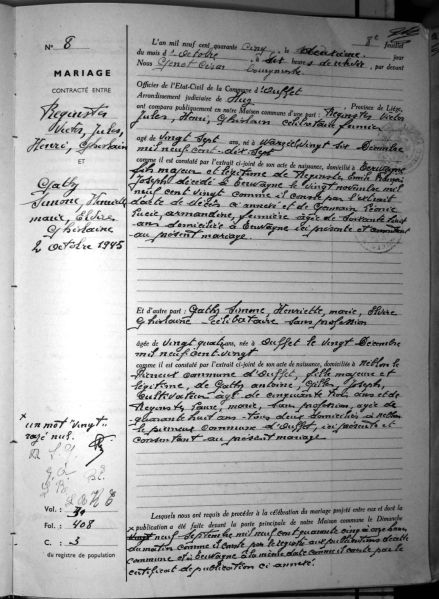 N° 8
MARIAGE
CONTRACTÉ ENTRE
Reginster
Victor, Jules,
Henri, Ghislain
ET
Gathy
Simone, Henriette
marie, Elvire
Ghislaine
2 octobre 1945
un mot "vingt"
rayé nul.
Vol. :
Fol. : 408
C. : 3
du registre de population
8e feuillet
L'an mil neuf cent quarante cinq, le deuxième jour
du mois d'octobre à dix heures, par devant
Nous Genot César
Officier de l'Etat-Civil de la Commune d'Ouffet
Arrondissement judiciaire de Huy, Province de Liége,
ont comparu publiquement en notre Maison commune d'une part : Reginster Victor
Jules, Henri, Ghislain célibataire fermier
âgé de vingt sept ans, né à Warzée vingt six Décembre
mil neuf cent dix sept
comme il est constaté par l'extrait ci-joint de son acte de naissance, domicilié à
fils majeur et légitime de Reginster, Emile
Joseph décédé à le vingt novembre mil
neuf cent vingt comme il conste par l'extrait
d'acte de décès ci annexé et de Germain Léonie
Lucie, armandine, fermière âgée de soixante huit
ans domiciliée à ici présente et consentant
au présent mariage.
Et d'autre part : Gathy Simone, Henriette, marie, Elvire
Ghislaine célibataire sans profession
âgée de vingt quatre ans, née à Ouffet le vingt Décembre
mil neuf cent vingt
comme il est constaté par l'extrait ci-joint de son acte de naissance, domiciliée à
commune d'Ouffet, fille majeure et
légitime, de Gathy antoine, Gilles, Joseph,
Cultivateur âgé de cinquante trois ans et de
Reginster, Laure, marie, sans profession, âgée de
quarante huit ans tous deux domiciliés à
commune d'Ouffet, ici présents et
consentant au présent mariage
Lesquels nous ont requis de procéder à la célébration du mariage projeté entre eux et dont la
publication a été faite devant la porte principale de notre Maison commune le Dimanche
neuf Septembre mil neuf cent quarante cinq à onze heures
du matin comme il conste par le registre aux publications de cette
commune et à la même date comme il conste par le
certificat de publication ci annexé.